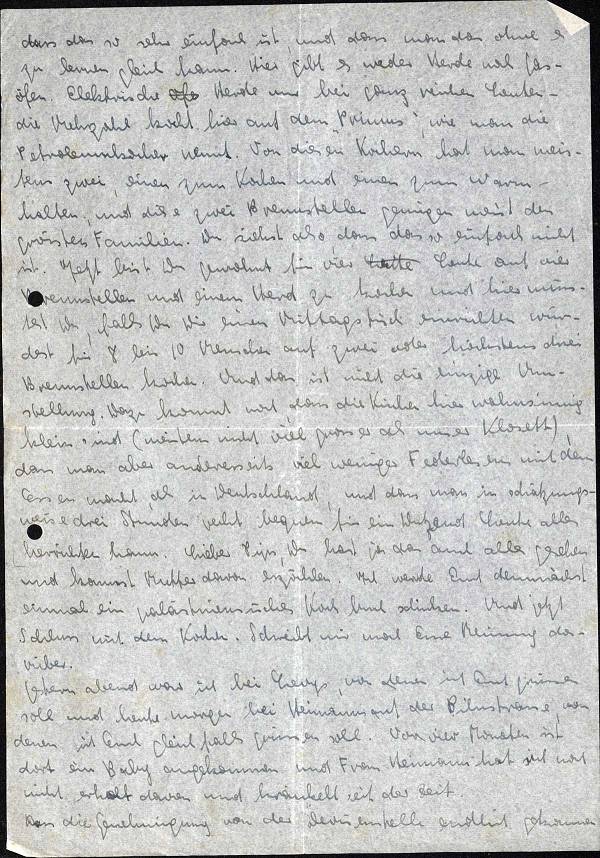 dass das so sehr einfach ist, und dass man das ohne es
zu lernen gleich kann. Hier gibt es weder Herde noch Gas-
öfen. Elektrische Herde nur bei ganz reichen Leuten –
die Mehrzahl kocht hier auf dem "Primus", wie man die
Petroleumkocher nennt. Von diesen Kochern hat man meis-
tens zwei, einen zum Kochen und einen zum Warm-
halten, und diese zwei Brennstellen genügen meist den
grössten Familien. Du siehst also, dass das so einfach nicht
ist. Jetzt bist Du gewohnt für vier Leute auf vier
Brennstellen und einem Herd zu kochen und hier müss-
test Du, falls Du Dir einen Mittagstisch einrichten wür-
dest für 8 bis 10 Menschen auf zwei oder höchstens drei
Brennstellen kochen. Und das ist nicht die einzige Um-
stellung. Dazu kommt noch, dass die Küchen hier wahnsinnig
klein sind (meistens nicht viel grösser als unser Klosett),
dass man aber andererseits viel weniger Federlesen mit dem
Essen macht, als in Deutschland, und dass man in schätzungs-
weise drei Stunden recht bequem für ein Dutzend Leute alles
herrichten kann. Lieber Du hast ja das auch alles gesehen
und kannst Mutter davon erzählen. Ich werde Euch demnächst
einmal ein palästinensisches Kochbuch schicken. Und jetzt
Schluss mit dem Kochen. Schreibt mir mal Eure Meinung da-
rüber.
Gestern abend war ich bei Levys, von denen ich Euch grüssen
soll und heute morgen bei Heimanns auf der von
denen ich Euch gleichfalls grüssen soll. Vor vier Monaten ist
dort ein Baby angekommen und Frau Heimann hat sich noch
nicht erholt davon und kränkelt seit der Zeit.
die Genehmigung von der Devisenstelle endlich gekommen